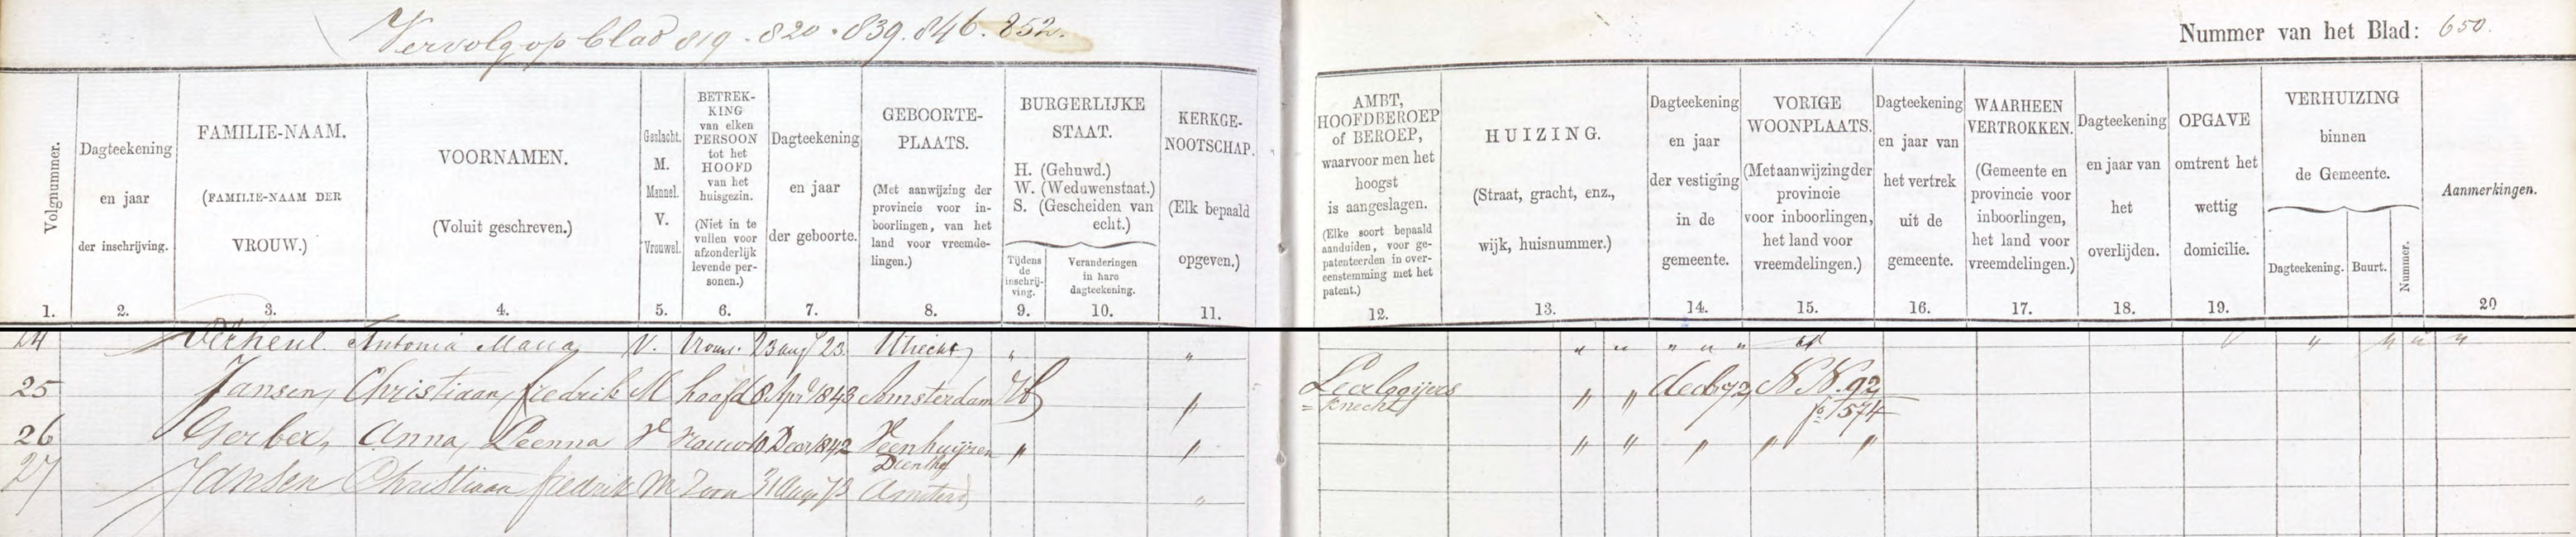 Vervolg op blad 819 . 820 . 839 . 846 . 852.
Nummer van het Blad: 650.
Volgnummer.
1.
Dagteekening
en jaar
der inschrijving.
2.
FAMILIE-NAAM.
(FAMILIE-NAAM DER
VROUW.)
3.
VOORNAMEN.
(Voluit geschreven.)
4.
Geslacht.
M.
Mannel.
V.
Vrouwel.
5.
BETREK-
KING
van elken
PERSOON
tot het
HOOFD
van het
huisgezin.
(Niet in te
vullen voor
afzonderlijk
levende per-
sonen.)
6.
Dagteekening
en jaar
der geboorte.
7.
GEBOORTE-
PLAATS.
(Met aanwijzing der
provincie voor in-
boorlingen, van het
land voor vreemde-
lingen.)
8.
BURGERLIJKE
STAAT.
H. (Gehuwd.)
W. (Weduwenstaat.)
S. (Gescheiden van
echt.)
Tijdens
de
inschrij-
ving.
9.
Veranderingen
in hare
dagteekening.
10.
KERKGE-
NOOTSCHAP.
(Elk bepaald
opgeven.)
11.
AMBT,
HOOFDBEROEP
of BEROEP,
waarvoor men het
hoogst
is aangeslagen.
(Elke soort bepaald
aanduiden, voor ge-
patenteerden in over-
eenstemming met het
patent.)
12.
HUIZING.
(Straat, gracht, enz.,
wijk, huisnummer.)
13.
Dagteekening
en jaar
der vestiging
in de
gemeente.
14.
VORIGE
WOONPLAATS.
(Met aanwijzing der
provincie
voor inboorlingen,
het land voor
vreemdelingen.)
15.
Dagteekening
en jaar van
het vertrek
uit de
gemeente.
16.
WAARHEEN
VERTROKKEN.
(Gemeente en
provincie voor
inboorlingen,
het land voor
vreemdelingen.)
17.
Dagteekening
en jaar van
het
overlijden.
18.
OPGAVE
omtrent het
wettig
domicilie.
19.
VERHUIZING
binnen
de Gemeente.
Dagteekening.
Buurt.
Nummer.
Aanmerkingen.
20
24 Verheul. Antonia Maria V. Vrouw. 23 aug 23. Utrecht " " " " " " "
25 Jansen, Christiaan fredrik M hoofd 8 Apr 1843 Amsterdam H " Leerlooijers " " dec 72 N N. 92
= knecht fo 1574
26 Gerber, Anna, Leenna V vrouw 10 Dec 1842 Veenhuijzen " " " " " " "
Drenthe
27 Jansen Christiaan fredrik M Zoon 31 Aug 73 Amsterd "